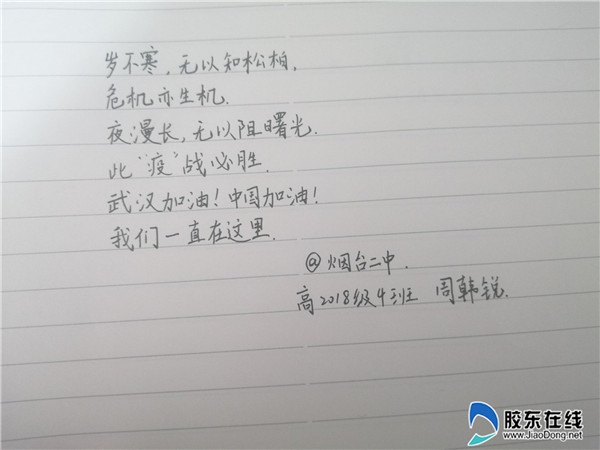 岁不寒，无以知松柏，
危机亦生机.
夜漫长，无以阻曙光.
此"疫"战必胜.
武汉加油！中国加油！
我们一直在这里.
@烟台二中.
高2018级4班 周韩锐.
胶东在线
www.JiaoDong.net